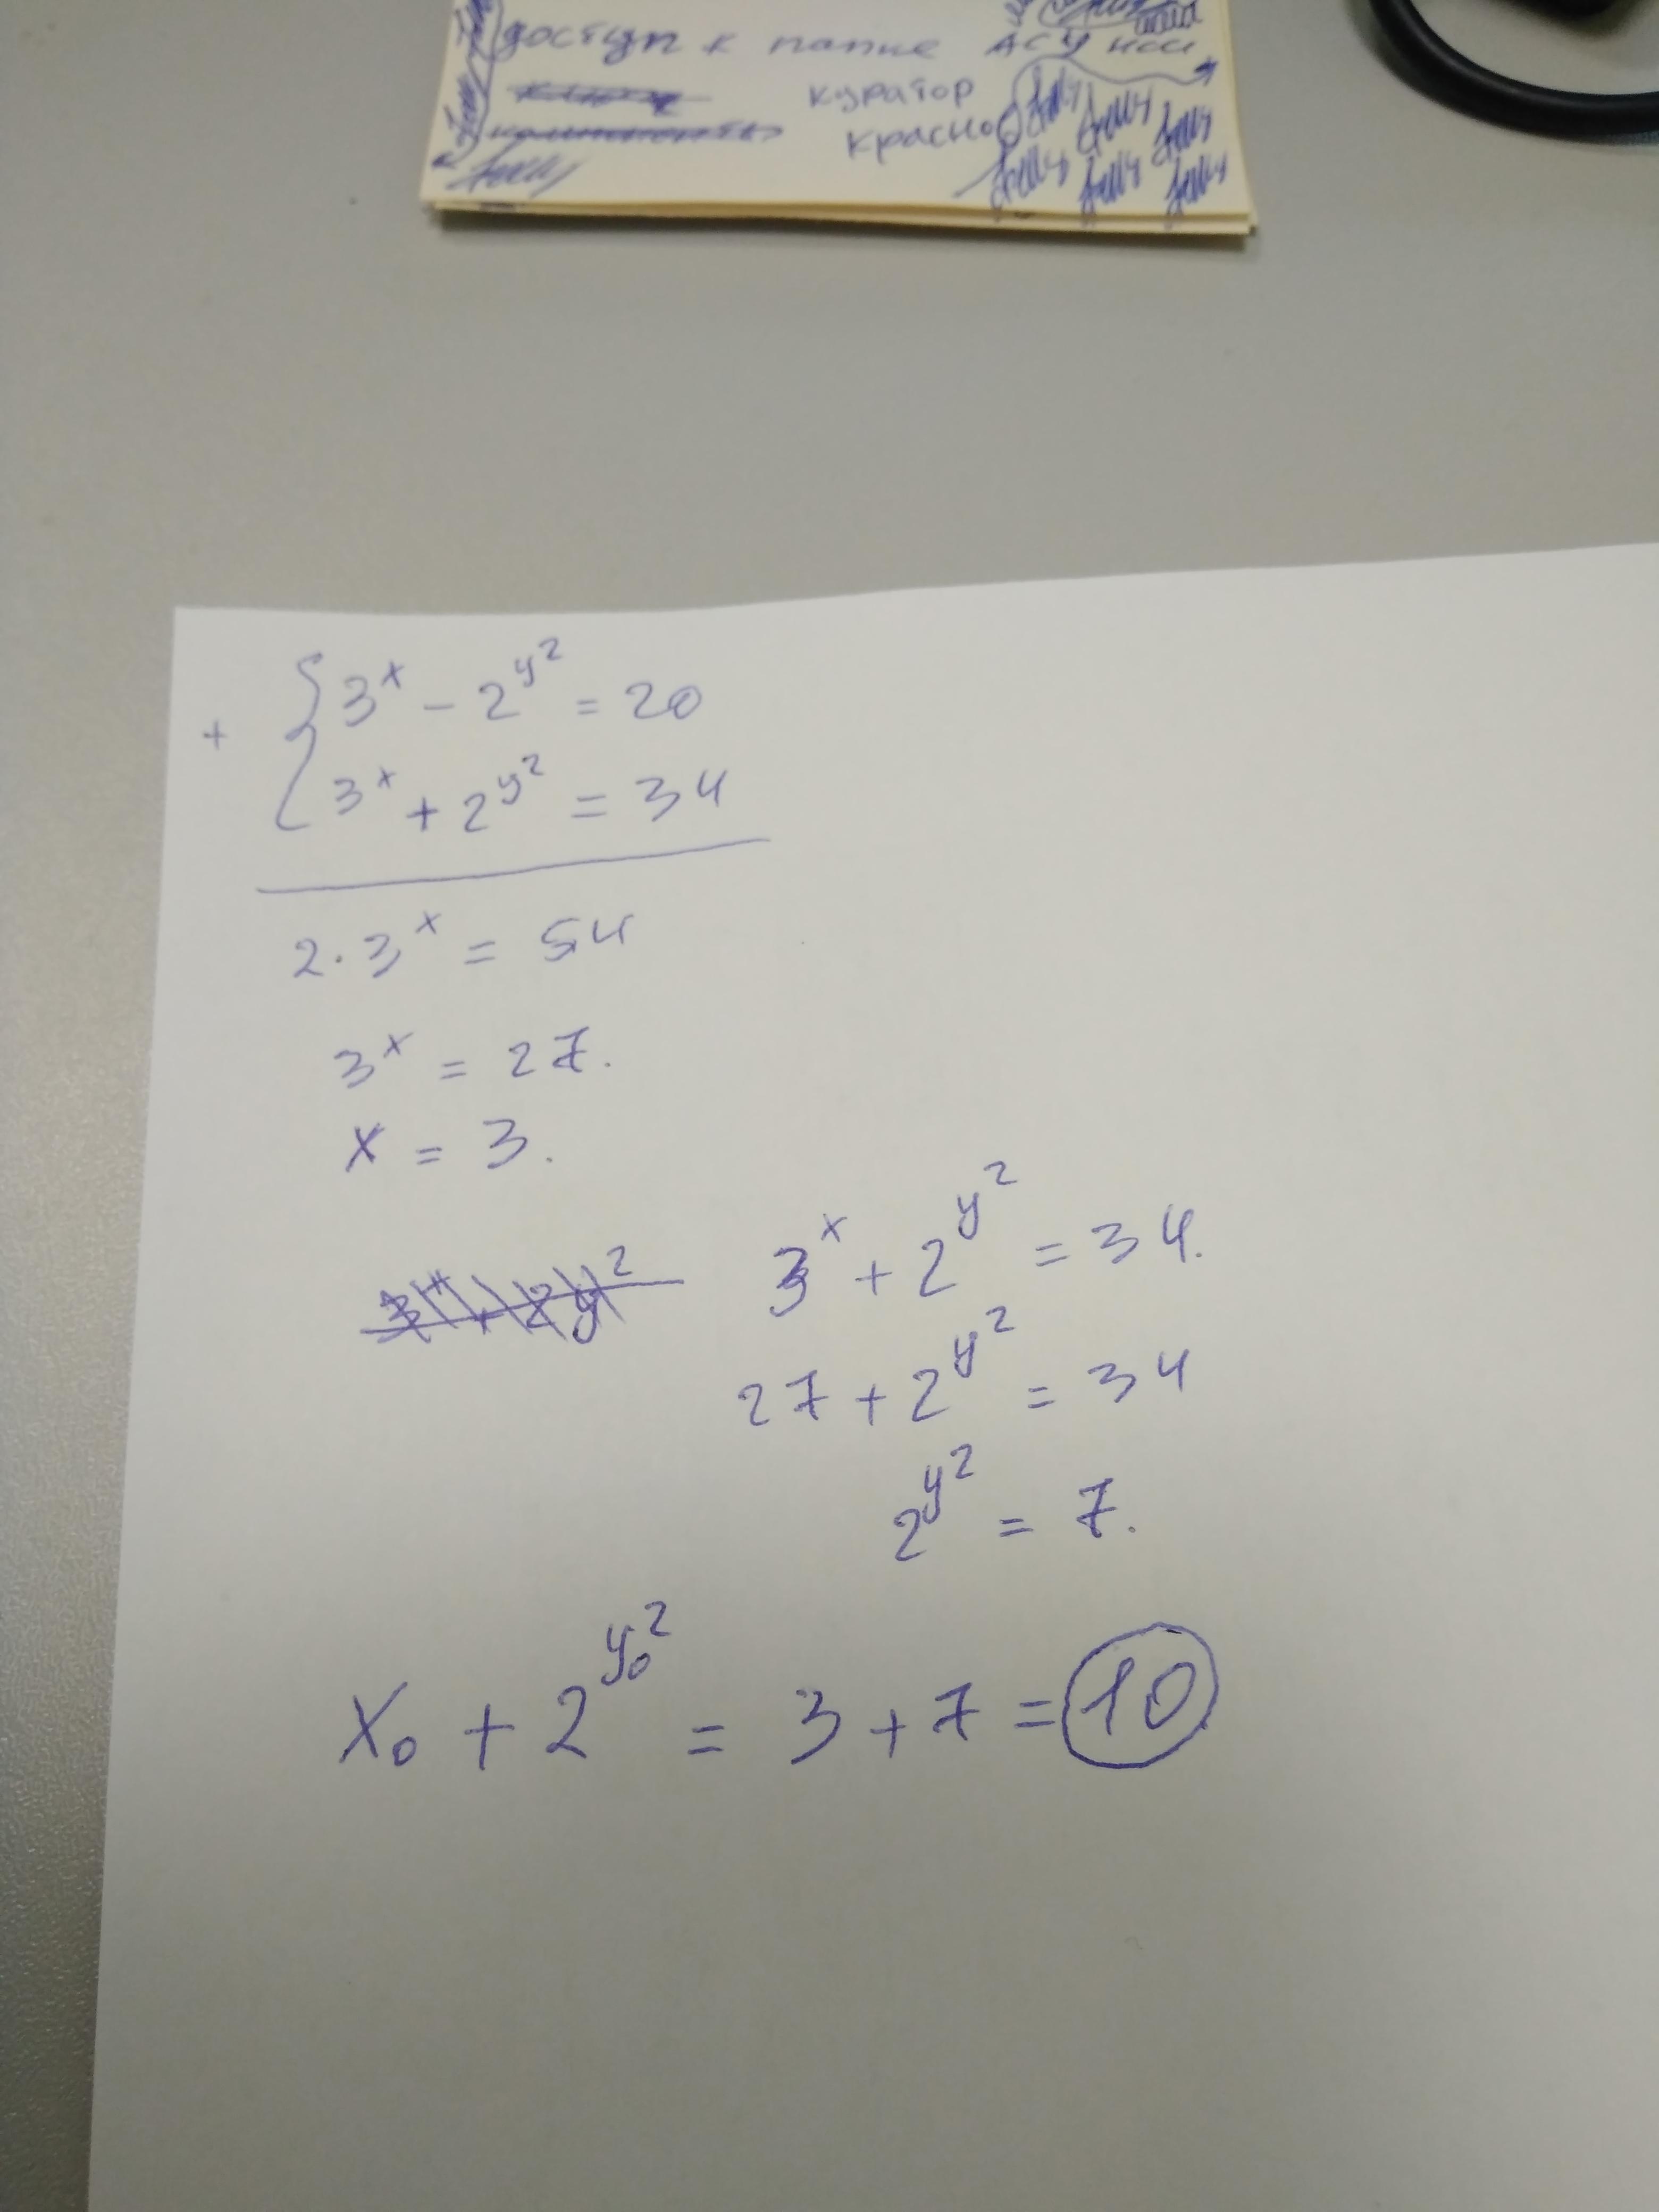 доступ к папке АСУ
куратор
красно
{3^x - 2^y^2 = 20
+
3^x + 2^y^2 = 34
2 · 3^x = 54
3^x = 27.
x = 3.
3^x + 2^y^2 = 34.
27 + 2^y^2 = 34
2^y^2 = 7.
x₀ + 2^y₀^2 = 3 + 7 = 10